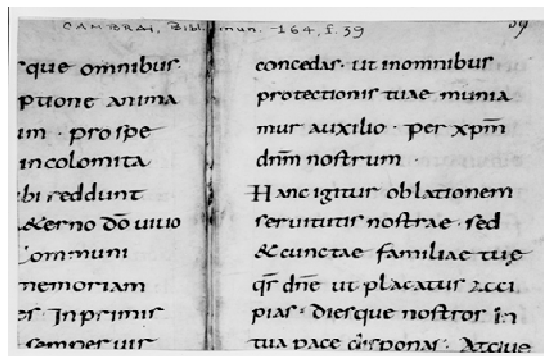 CAMBRAI, Bibl. mun. 164, f. 39
39
que omnibus
ptione anima
um · prospe
incolomita
bi reddunt
&erno dō uiuo
Communi
memoriam
es Inprimis
semper uir
concedas· ut inomnibus
protectionis tuae munia
mur auxilio · per xpm̄
dnm̄ nostrum ·
Hanc igitur oblationem
seruitutis nostrae · sed
&cunctae familiae tuę
qs̄ dnē ut placatus acci
pias · diesque nostros in
tua pace disponas · Atque